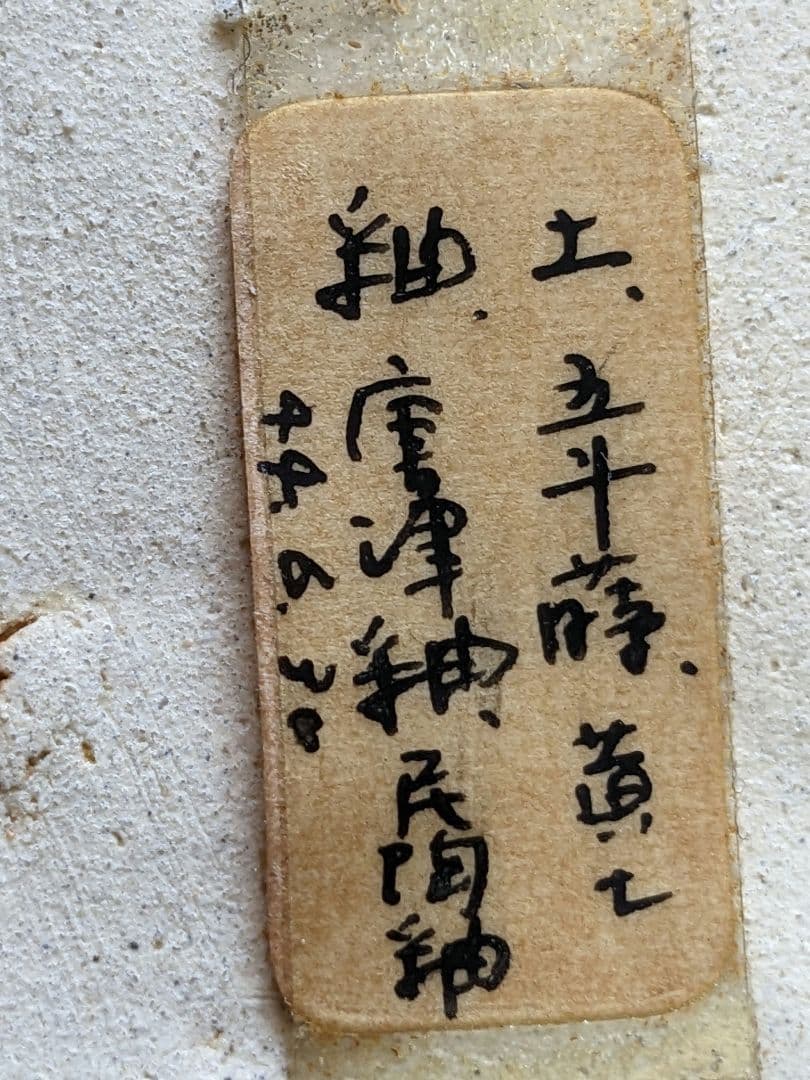 土、五斗蒔、黄土
釉、唐津釉、民陶釉
44.6.30